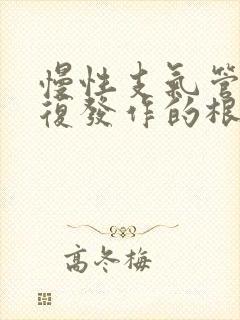 慢性支氣管
復發作的根
高冬梅